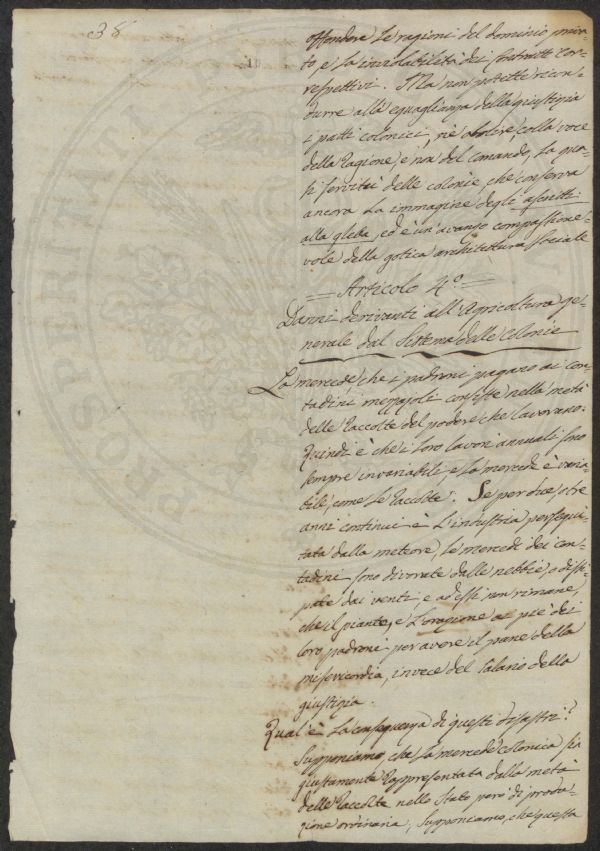 38
offendere le ragioni del dominio priva=
to, e la inviolabilità dei contratti cor=
respettivi. Ma non potette ricon=
durre alla eguaglianza della giustizia
i patti colonici, nè abolire, colla voce
della Ragione, e non del comando, la qua=
si servitù delle colonie, che conserva
ancora la immagine degli ascritti
alla gleba, ed è un'avanzo compassione=
vole della gotica architettura sociale
Articolo 4.°
Danni derivanti all'Agricoltura ge=
nerale dal Sistema delle Colonie
La mercede che i padroni pagano ai con=
tadini mezzajoli consiste nella metà
delle Raccolte del podere che lavorano.
Quindi è che i loro lavori annuali sono
sempre invariabili, e la mercede è varia=
bile, come le Raccolte. Se per due, o tre
anni continui è l'industria persegui=
tata dalle meteore, le mercedi dei con=
tadini sono divorate dalle nebbie, o dissi=
pate dai venti, e ad essi non rimane,
che il piante, e l'orazione ai piè dei
loro padroni per avere il pane della
misericordia, invece del salario della
giustizia.
Qual'è la conseguenza di questi disastri?
Supponiamo, che la mercede colonica sia
giustamente rappresentata dalla metà
delle Raccolte nello stato però di produ=
zione ordinaria, supponiamo, che questa
PROSPERIN